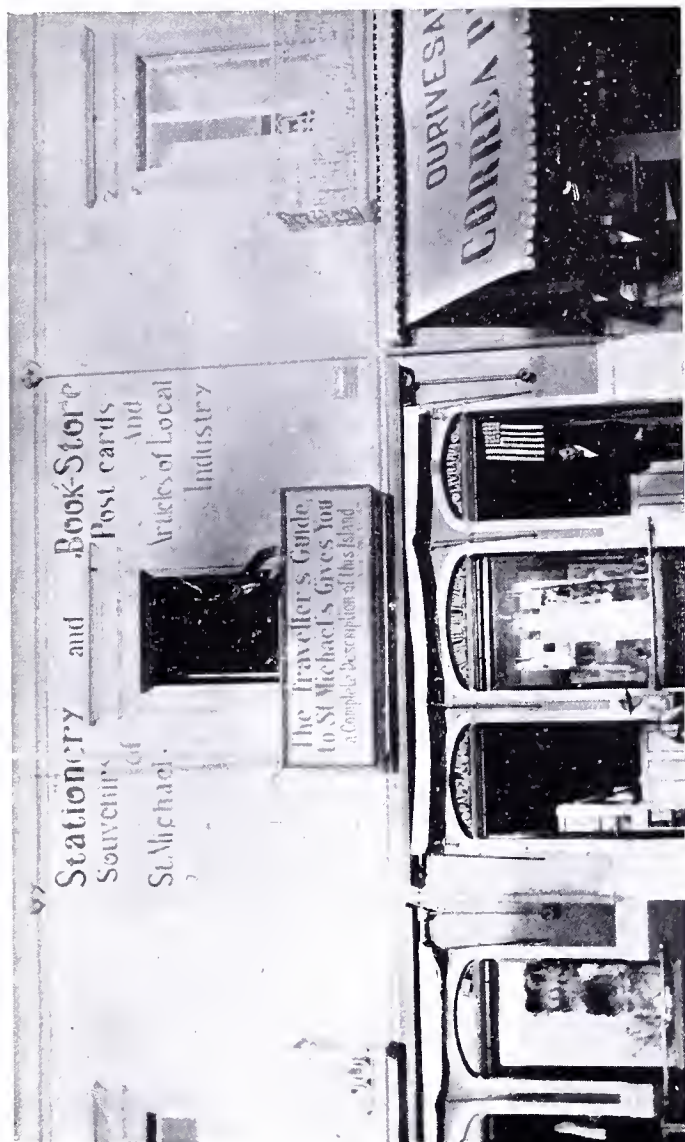 Stationery and Book-Store
Souvenirs of Post cards
And
St. Michael. Articles of Local
Industry
The Traveller's Guide,
to St Michael's Gives You
a Complete Description of this Island
OURIVESA
CORREA P